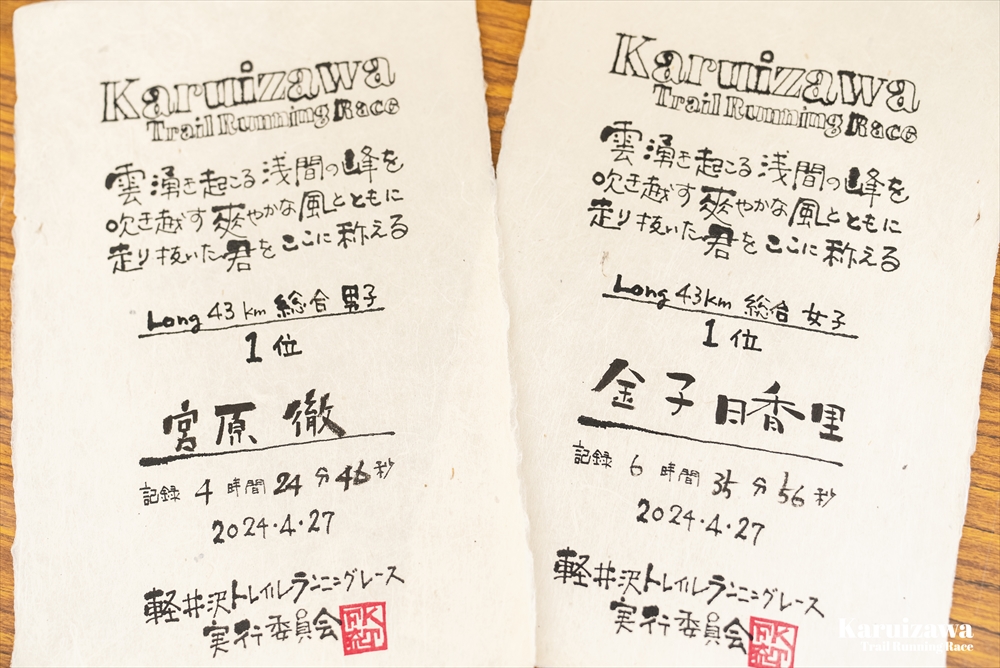 Karuizawa
Trail Running Race
雲湧き起こる浅間の峰を
吹き越す爽やかな風とともに
走り抜いた君をここに称える
Long 43km 総合 男子
1位
宮原 徹
記録 4 時間 24 分 46 秒
2024・4・27
軽井沢トレイルランニングレース
実行委員会
Karuizawa
Trail Running Race
雲湧き起こる浅間の峰を
吹き越す爽やかな風とともに
走り抜いた君をここに称える
Long 43km 総合 女子
1位
金子 日香里
記録 6 時間 35 分 56 秒
2024・4・27
軽井沢トレイルランニングレース
実行委員会
Karuizawa
Trail Running Race